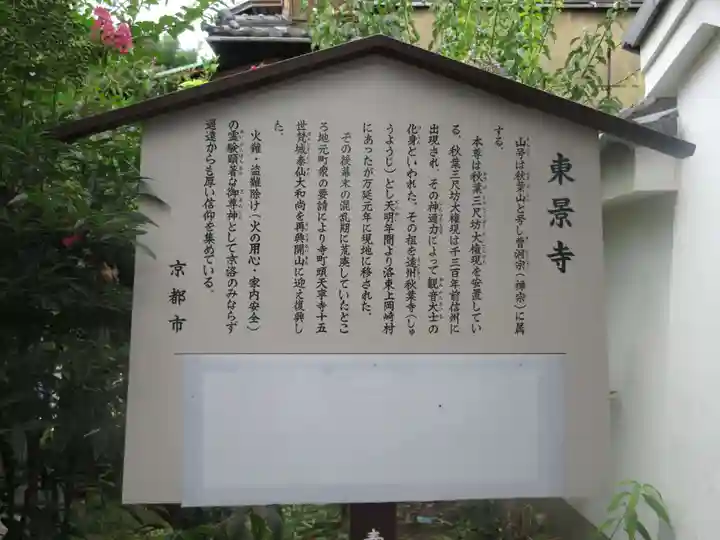 東景寺
山号は秋葉山と号し曹洞宗（禅宗）に属
する。
本尊は秋葉三尺坊大権現を安置してい
る。秋葉三尺坊大権現は千三百年前信州に
出現され、その神通力によって観音大士の
化身といわれた。その祖を遠州秋葉寺（しゅ
うようじ）とし天明年間より洛東上岡崎村
にあったが万延元年に現地に移された。
その後幕末の混乱期に荒廃していたとこ
ろ地元町衆の要請により寺町頭天寧寺十五
世賛城泰仙大和尚を再興開山に迎え復興し
た。
火難・盗難除け（火の用心・家内安全）
の霊験顕著な御尊神として京洛のみならず
遠達からも厚い信仰を集めている。
京都市